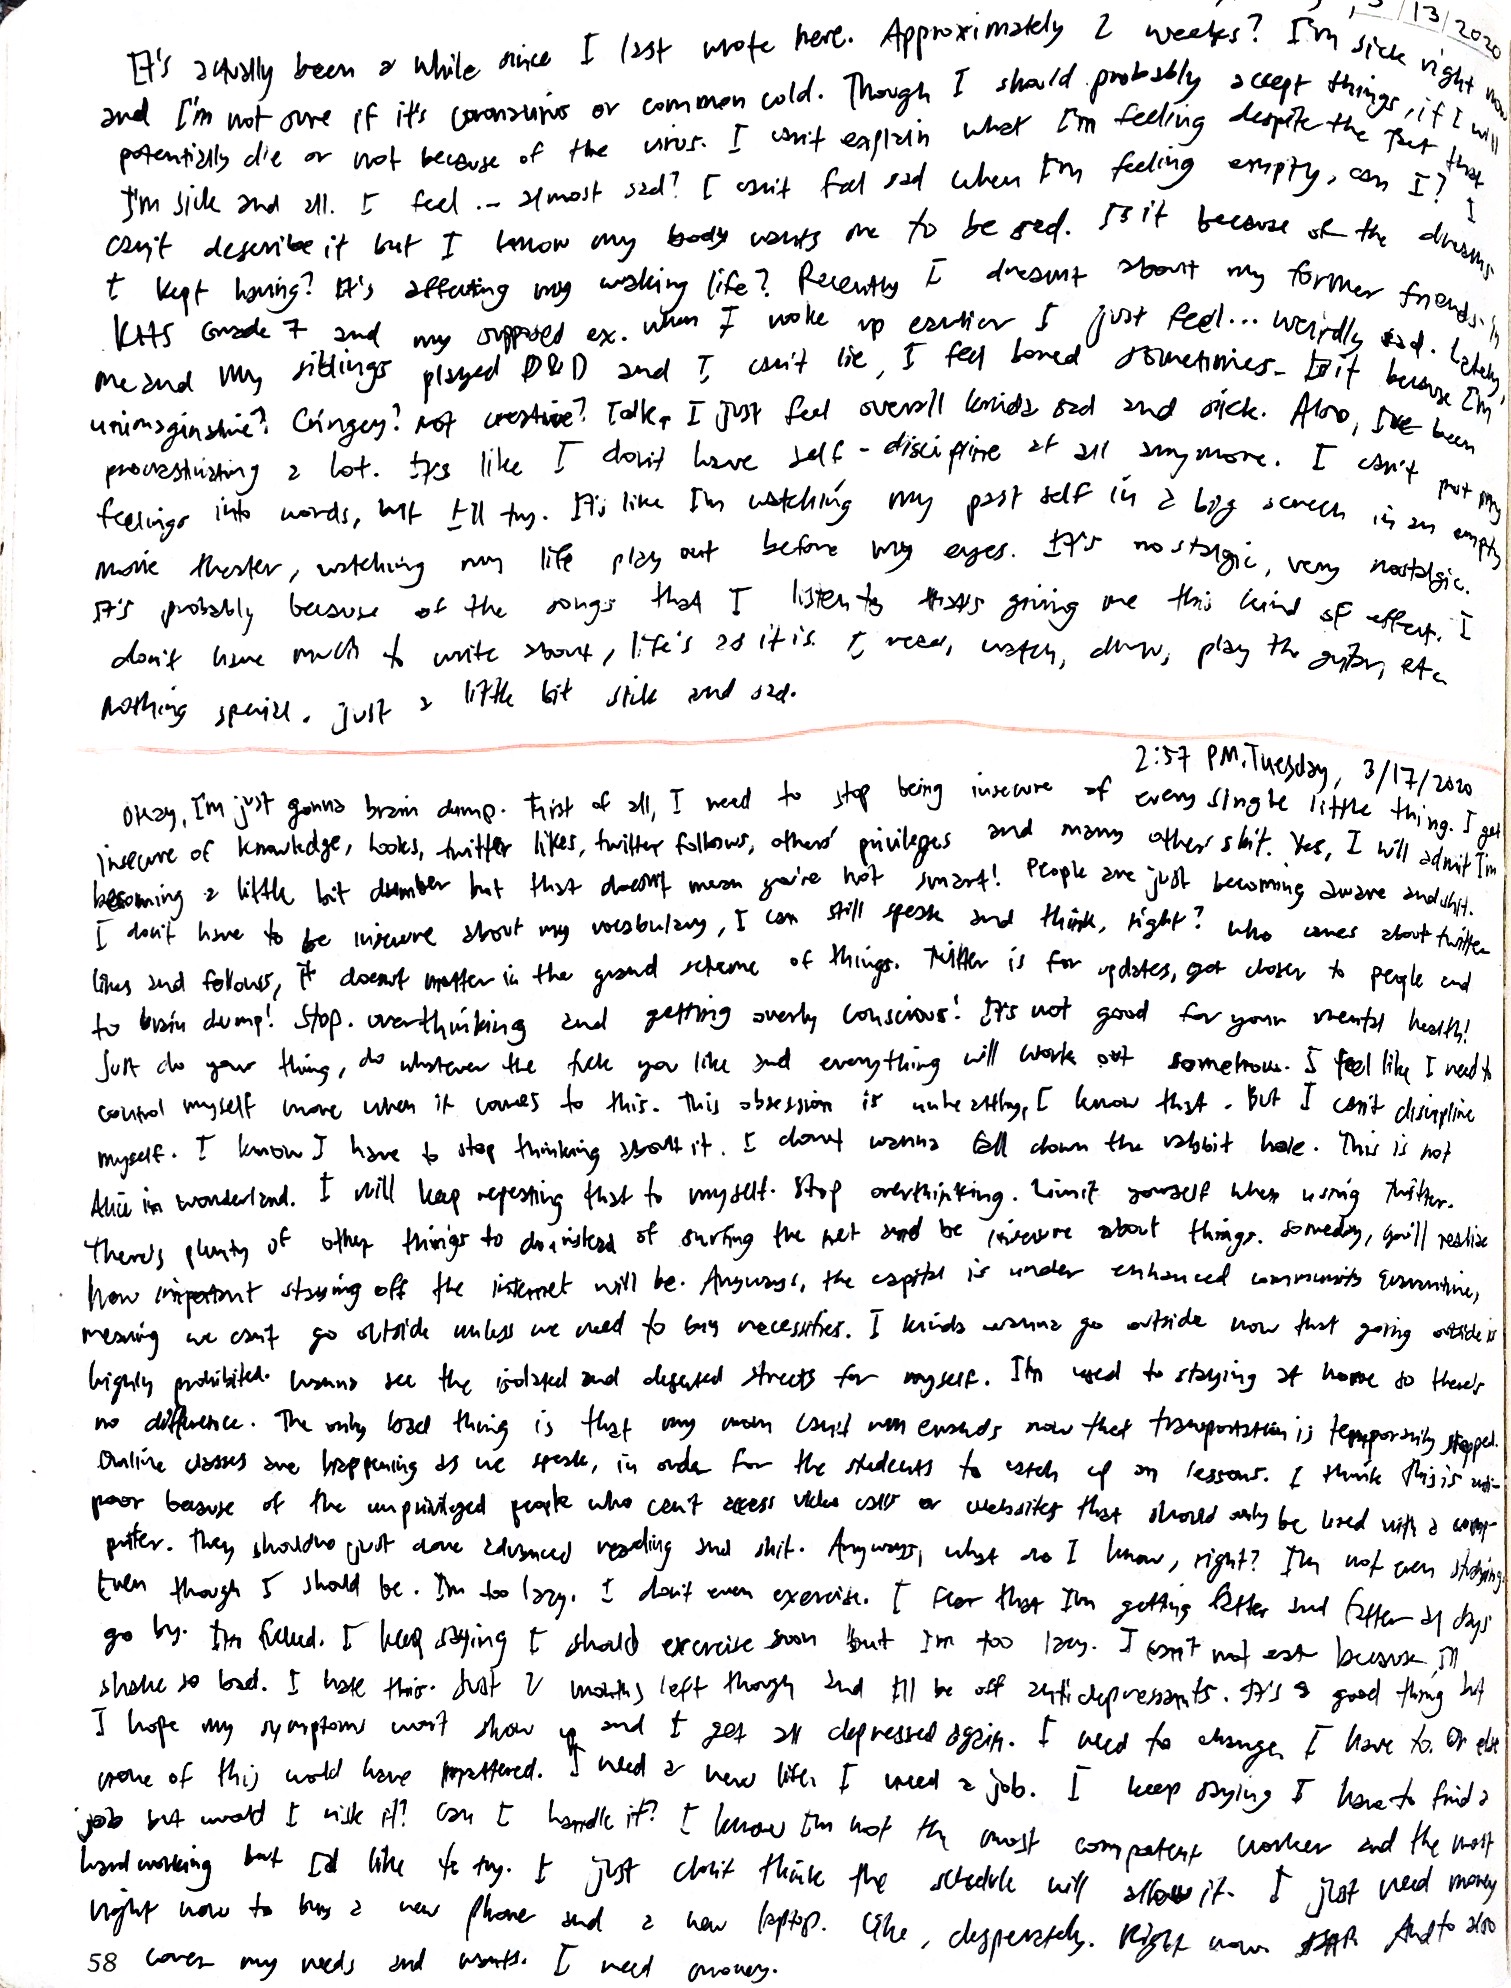 3/13/2020
It's actually been a while since I last wrote here. Approximately 2 weeks? I'm sick right now
and I'm not sure if it's coronavirus or common cold. Though I should probably accept things, if I will
potentially die or not because of the virus. I can't explain what I'm feeling despite the fact that
I'm sick and all. I feel... almost sad? I can't feel sad when I'm feeling empty, can I? I
can't describe it but I know my body wants me to be sad. Is it because of the dreams
I kept having? It's affecting my waking life? Recently I dreamt about my former friends in
KHS Grade 7 and my supposed ex. When I woke up earlier I just feel... weirdly sad. Lately,
me and my siblings played D&D and I can't lie, I feel bored sometimes. Is it because I'm
unimaginative? Cringey? Not creative? Idk, I just feel overall kinda sad and sick. Also, I've been
procrastinating a lot. It's like I don't have self-discipline at all anymore. I can't put my
feelings into words, but I'll try. It's like I'm watching my past self in a big screen in an empty
movie theater, watching my life play out before my eyes. It's nostalgic, very nostalgic.
It's probably because of the songs that I listen to that's giving me this kind of effect. I
don't have much to write about, life's as it is. I read, watch, draw, play the guitar, etc.
Nothing special. Just a little bit sick and sad.
2:57 PM, Tuesday, 3/17/2020
Okay, I'm just gonna brain dump. First of all, I need to stop being insecure of every single little thing. I get
insecure of knowledge, looks, twitter likes, twitter follows, others' privileges and many other shit. Yes, I will admit I'm
becoming a little bit dumber but that doesn't mean you're not smart! People are just becoming aware and shit.
I don't have to be insecure about my vocabulary, I can still speak and think, right? Who cares about twitter
likes and follows, it doesn't matter in the grand scheme of things. Twitter is for updates, get closer to people and
to brain dump! Stop. overthinking and getting overly conscious! It's not good for your mental health!
Just do your thing, do whatever the fuck you like and everything will work out somehow. I feel like I need to
control myself more when it comes to this. This obsession is unhealthy, I know that. But I can't discipline
myself. I know I have to stop thinking about it. I don't wanna fall down the rabbit hole. This is not
Alice in Wonderland. I will keep repeating that to myself. Stop overthinking. Limit yourself when using Twitter.
There's plenty of other things to do, instead of surfing the net and be insecure about things. Someday, you'll realize
how important staying off the internet will be. Anyways, the capital is under enhanced community quarantine,
meaning we can't go outside unless we need to buy necessities. I kinda wanna go outside now that going outside is
highly prohibited. Wanna see the isolated and deserted streets for myself. I'm used to staying at home so there's
no difference. The only bad thing is that my mom can't run errands now that transportation is temporarily stopped.
Online classes are happening as we speak, in order for the students to catch up on lessons. I think this is anti-
poor because of the unprivileged people who can't access video calls or websites that should only be used with a comp-
puter. They should've just done advanced reading and shit. Anyways, what do I know, right? I'm not even studying
Even though I should be. I'm too lazy. I don't even exercise. I fear that I'm getting fatter and fatter as days
go by. I'm fucked. I keep saying I should exercise soon but I'm too lazy. I can't not eat because I'll
shake so bad. I hate this. Just 2 months left though and I'll be off antidepressants. It's a good thing but
I hope my symptoms won't show up and I get all depressed again. I need to change. I have to. Or else
none of this would have mattered. I need a new life. I need a job. I keep saying I have to find a
job but would I risk it? Can I handle it? I know I'm not the most competent worker and the most
hardworking but I'd like to try. I just don't think the schedule will allow it. I just need money
right now to buy a new phone and a new laptop. Like, desperately. Right now. And to also
cover my needs and wants. I need money.
58